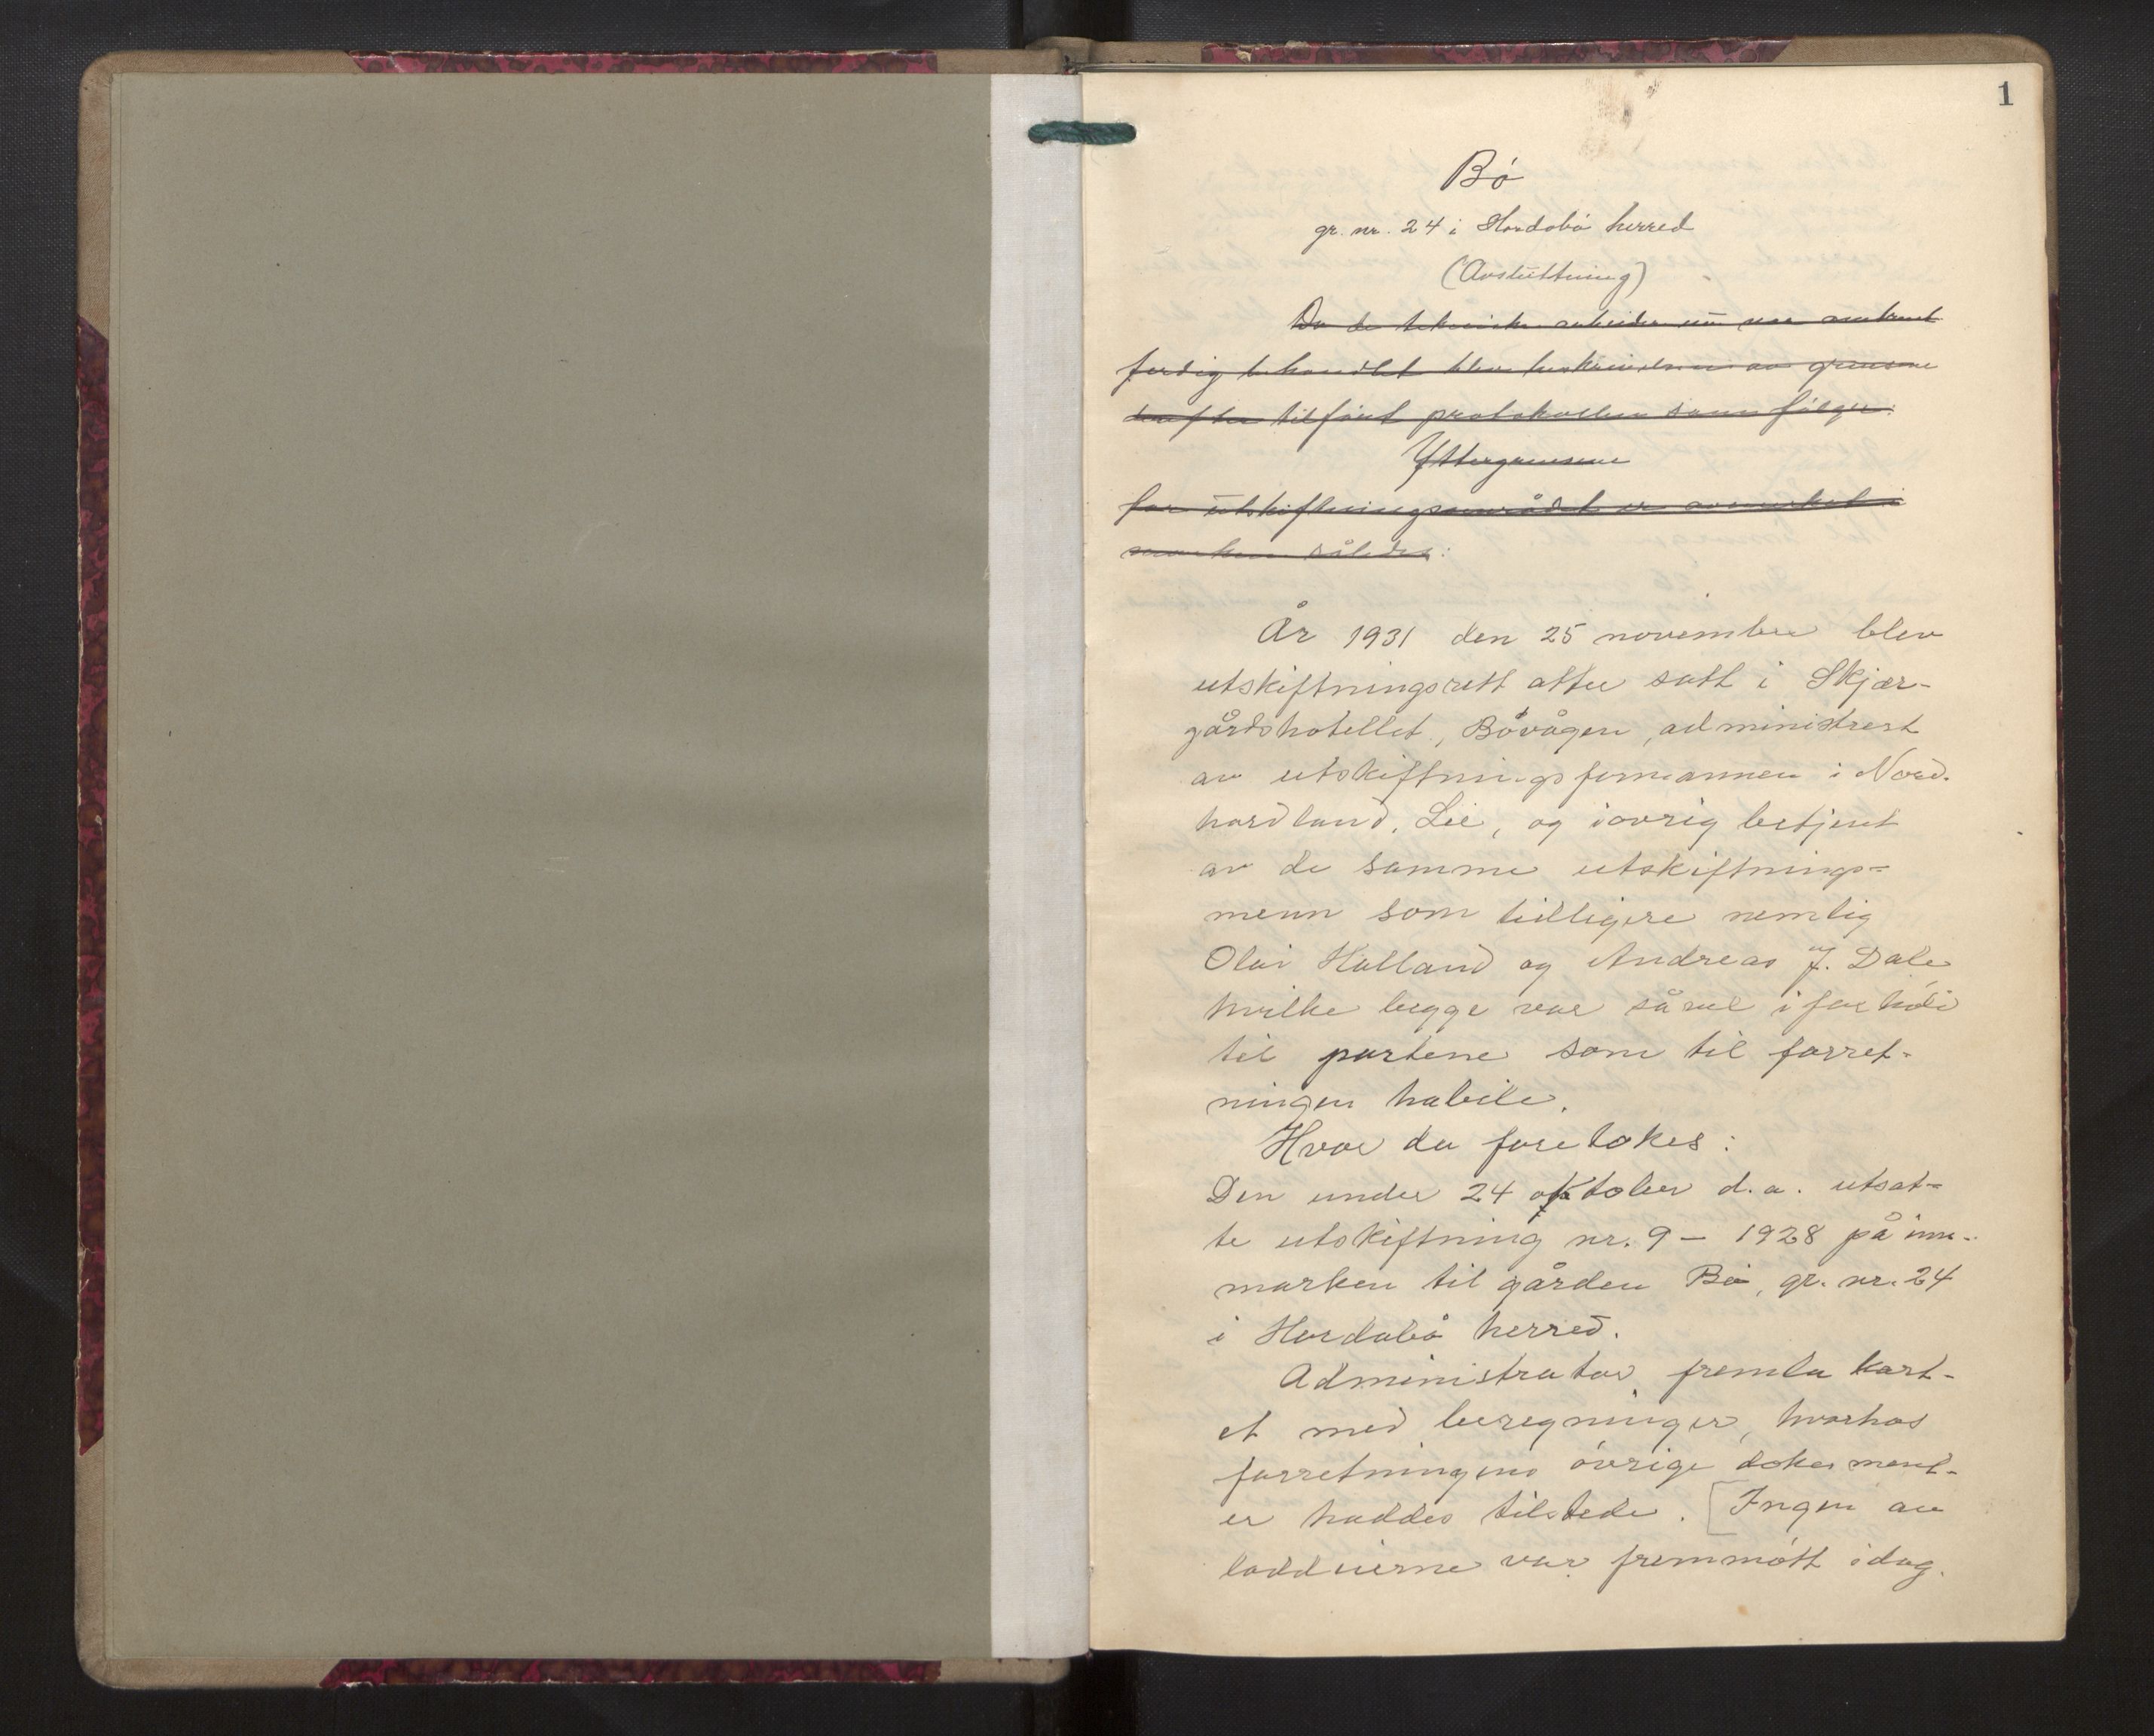 1
Bó
gr. nr. 24 i Hordabó herred
(Avslutning)
Da de tekniske arbeider nu var omtrent
ferdig behandlet blev beskrivelsen av grensene
derefter tilført protokollen som følger:
Yttergrensene
for utskiftningsområdet er avmerket i
marken således:
År 1931 den 25 november blev
utskiftningsrett atter satt i Skjær-
gårdshotellet, Bóvågen, administrert
av utskiftningsformannen i Nord-
hordland, Lie, og iøvrig betjent
av de samme utskiftnings-
menn som tidligere nemlig
Olai Halland og Andreas J. Dale
hvilke begge var såvel i forhold
til partene som til forret-
ningen habile.
Hvor da foretokes:
Den under 24 oktober d.a. utsat-
te utskiftning nr. 9 – 1928 på inn-
marken til gården Bó, gr. nr. 24
i Hordabó herred.
Administrator fremla kart-
et med beregninger, hvorhos
forretningens óvrige dokument-
er haddes tilstede. [Ingen av
loddeierne var fremmótt idag.